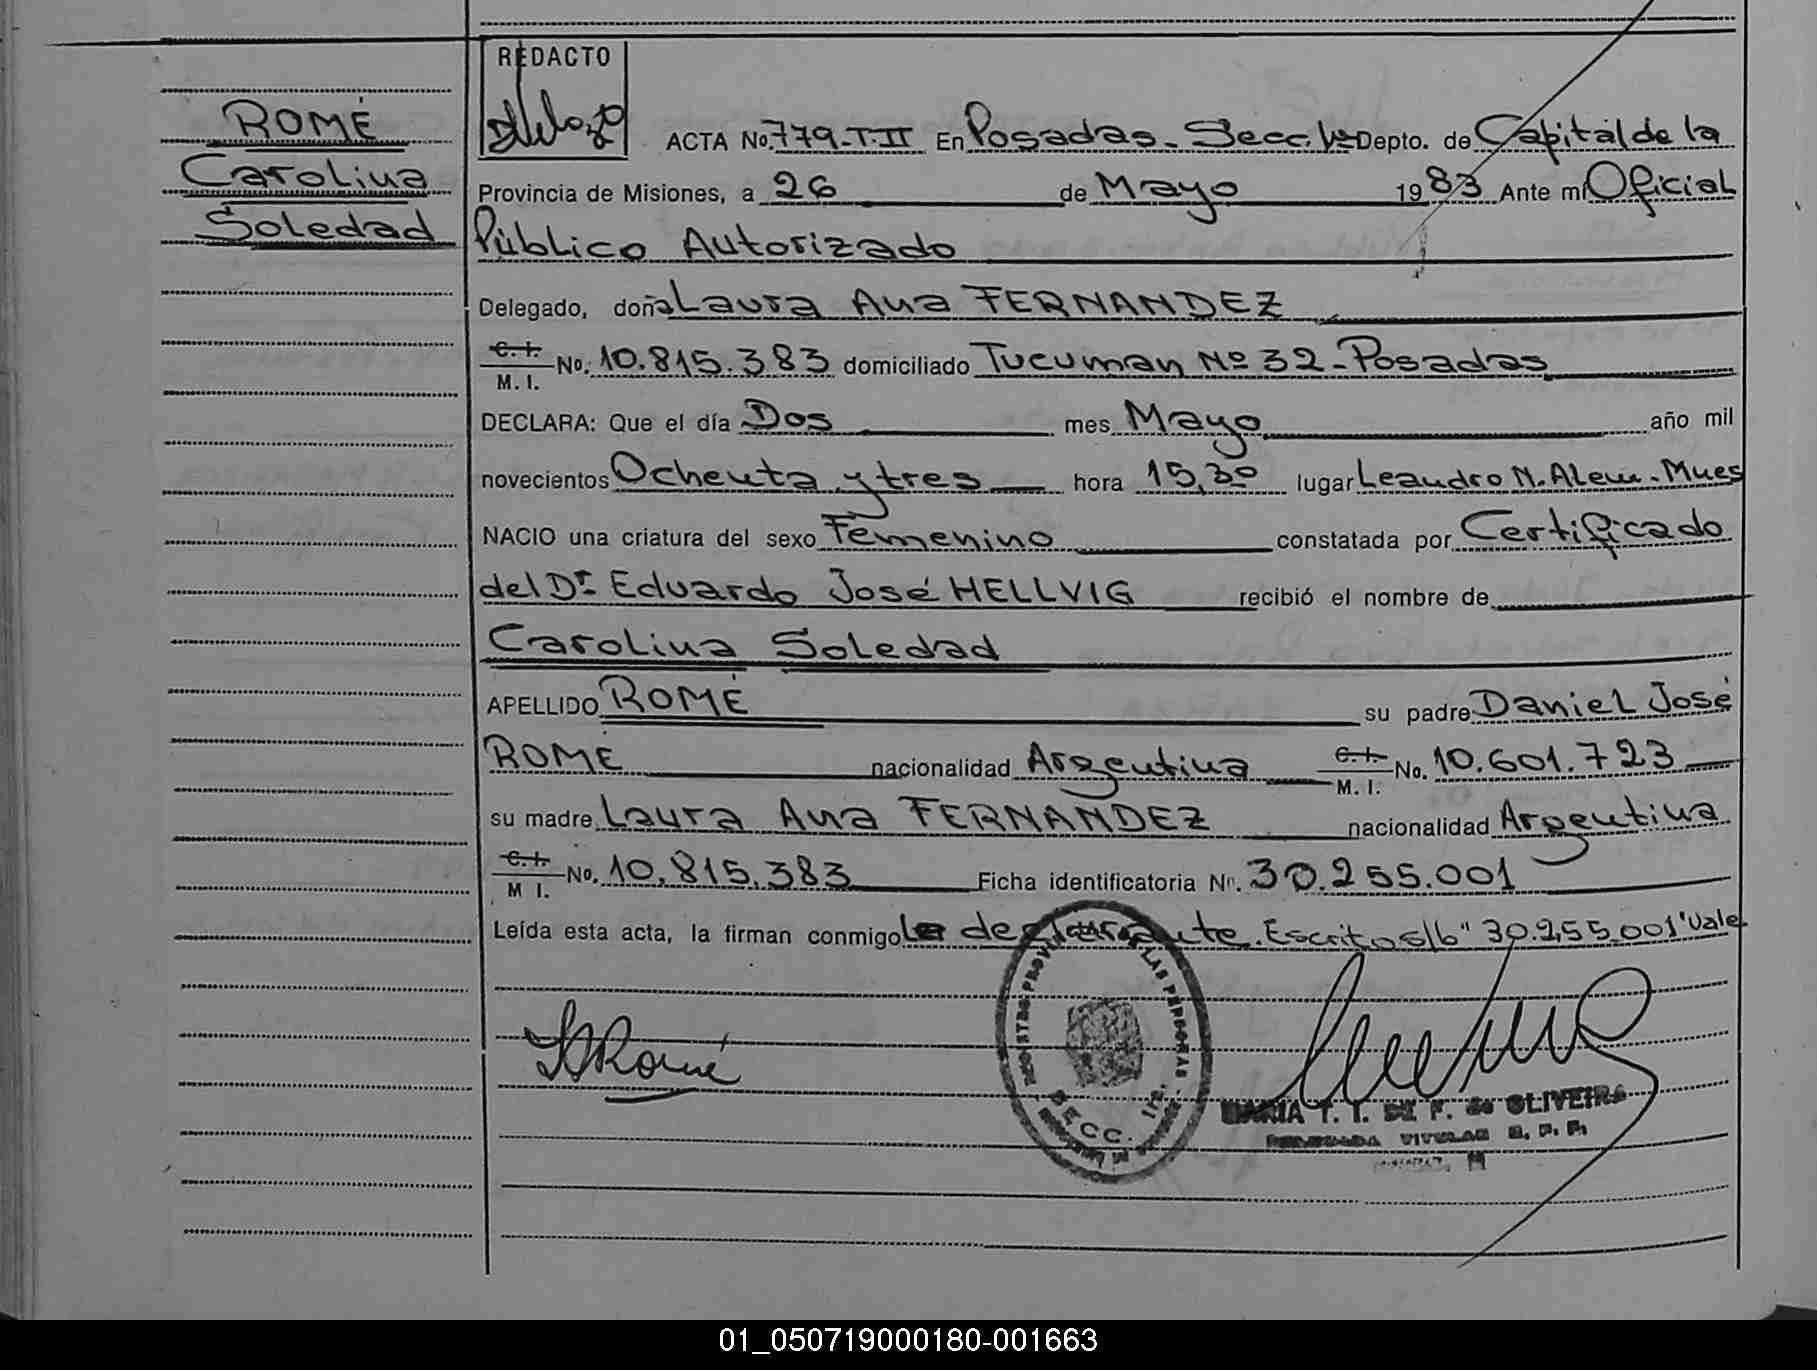 REDACTO
ROMÉ
Carolina
Soledad
ACTA No. 779-T.II En Posadas - Secc. 1ra Depto. de Capital de la
Provincia de Misiones, a 26 de Mayo 1983 Ante mi Oficial
Público Autorizado
Delegado, doña Laura Ana FERNANDEZ
C. I. M. I. No. 10.815.383 domiciliado Tucuman Nº 32 - Posadas
DECLARA: Que el día Dos mes Mayo año mil
novecientos Ochenta y tres hora 15,30 lugar Leandro N. Alem - Mnes
NACIO una criatura del sexo Femenino constatada por Certificado
del Dr. Eduardo José HELLVIG recibió el nombre de
Carolina Soledad
APELLIDO ROMÉ su padre Daniel José
ROMÉ nacionalidad Argentina C. I. M. I. No. 10.601.723
su madre Laura Ana FERNANDEZ nacionalidad Argentina
C. I. M I. No. 10.815.383 Ficha identificatoria Nº. 30.255.001
Leída esta acta, la firman conmigo la declarante. Escrito s/b "30.255.001" Vale
REGISTRO PROVINCIAL DE LAS PERSONAS
SECC. 1ra.
MARIA T. I. DE F. de OLIVEIRA
01_050719000180-001663